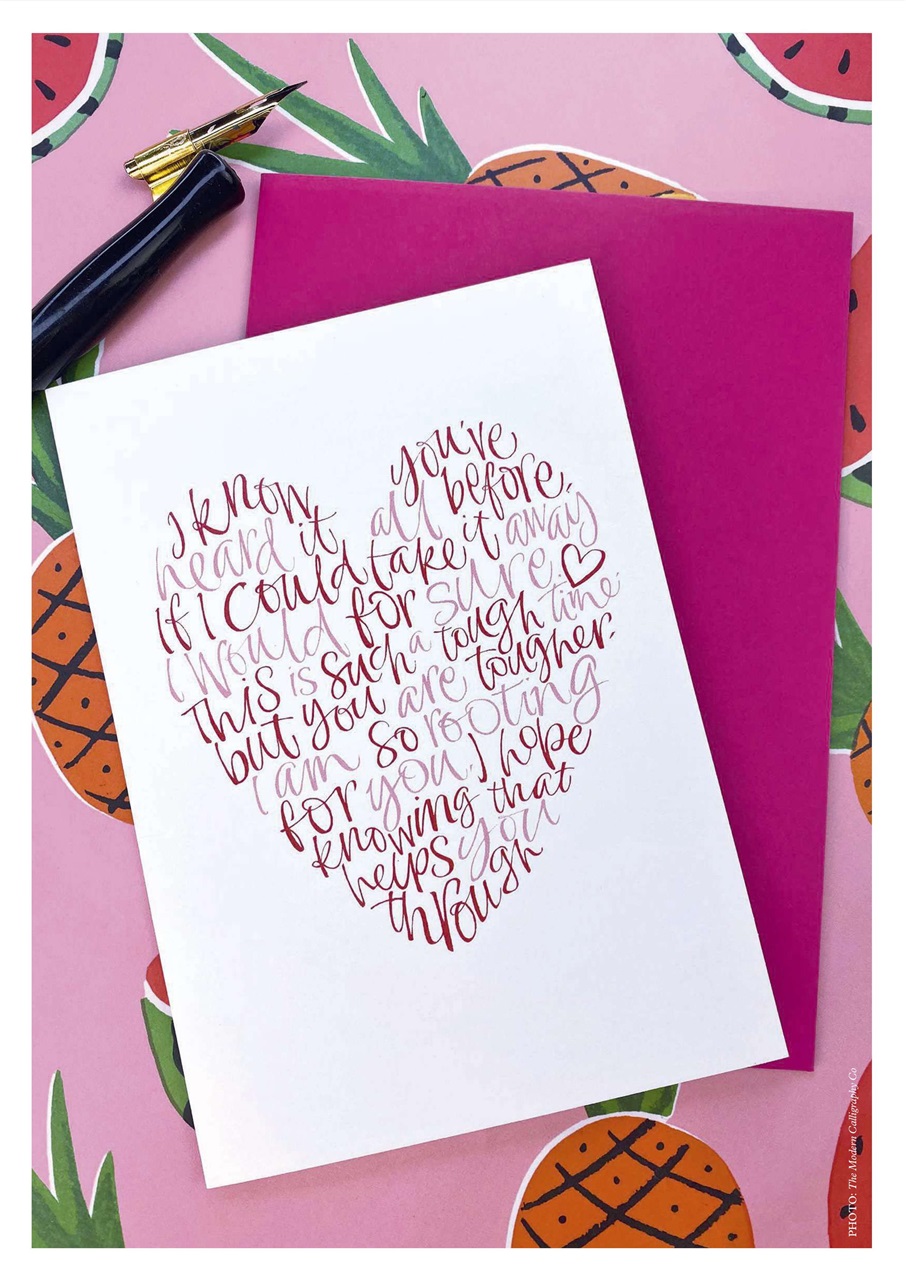 I know you've
heard it all before,
If I could take it away
I would for sure ♡
This is such a tough time
but you are tougher.
I am so rooting
for you. I hope
knowing that
helps you
through
PHOTO: The Modern Calligraphy Co